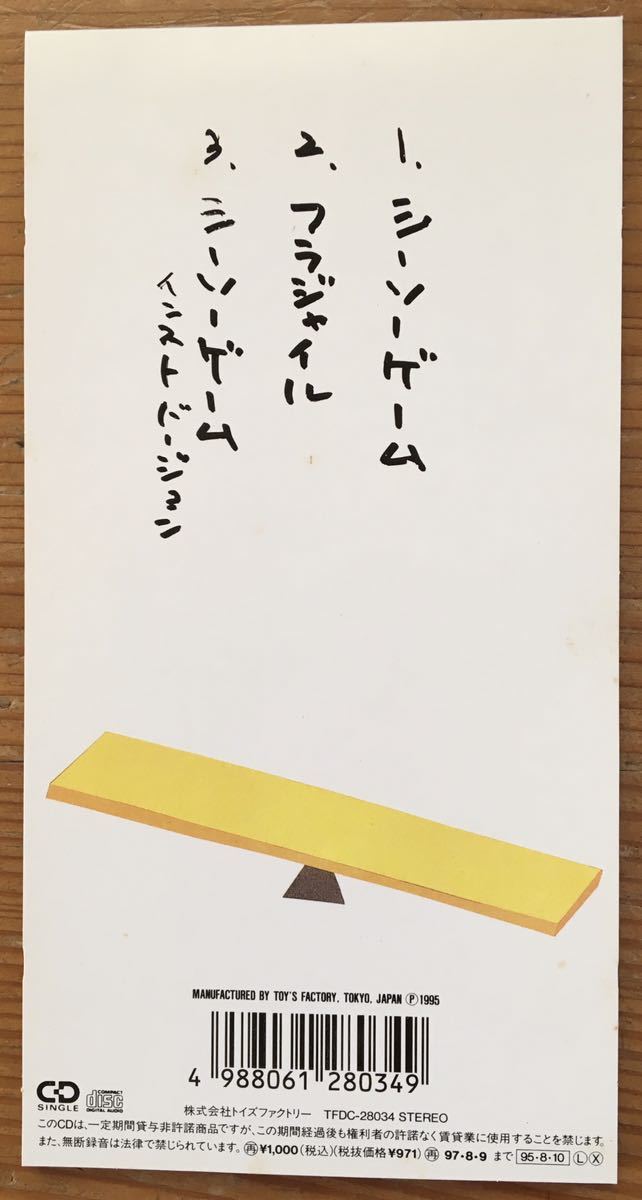 1. シーソーゲーム
2. フラジャイル
3. シーソーゲーム
インストバージョン
MANUFACTURED BY TOY'S FACTORY, TOKYO, JAPAN Ⓟ1995
4 988061 280349
CD SINGLE
COMPACT disc DIGITAL AUDIO
株式会社トイズファクトリー TFDC-28034 STEREO
このCDは、一定期間貸与非許諾商品ですが、この期間経過後も権利者の許諾なく賃貸業に使用することを禁じます。
また、無断録音は法律で禁じられています。㊢¥1,000(税込)(税抜価格¥971) ㊢97・8・9 まで 95・8・10 Ⓛ Ⓧ